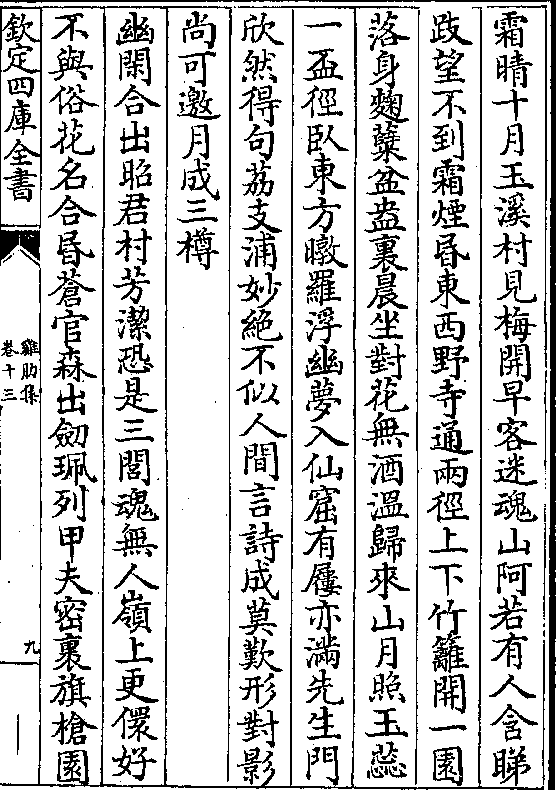 霜晴十月玉溪村見梅開早客迷魂山阿若有人含睇
跂望不到霜煙昬東西野寺通兩徑上下竹籬開一園
落身麴糵盆盎裏晨坐對花無酒温歸來山月照玉蕊
一盃徑卧東方暾羅浮幽夢入仙窟有屨亦滿先生門
欣然得句荔支浦妙絶不似人間言詩成莫歎形對影
尚可邀月成三樽
幽閑合出昭君村芳潔恐是三閭魂無人嶺上更儇好
不與俗花名合昬蒼官森出劒珮列甲夫密裹旗槍園
欽定四庫全書
雞肋集
卷十三
九